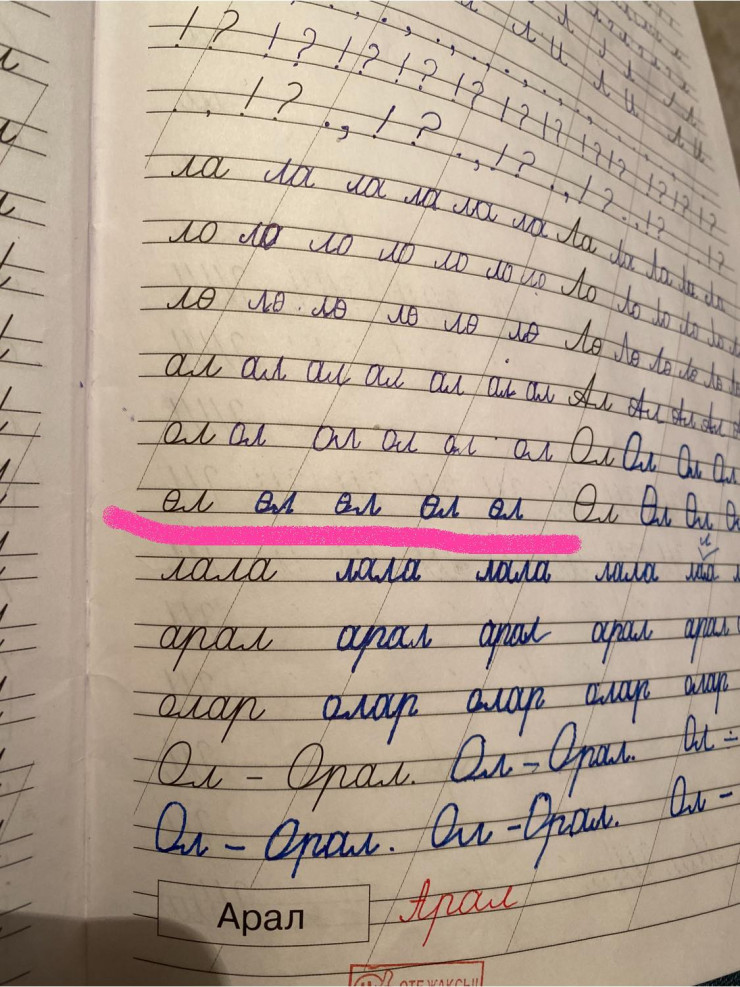 ! ? ! ? ! ? ! ? ! ? ! ? ! ? ! ? ! ?
. , ! ? . , ! ? . , ! ? . , ! ? . , ! ?
ла ла ла ла ла ла Ла Ла Ла Ла Ла
ло ло ло ло ло ло ло Ло Ло Ло Ло Ло Ло
лө лө лө лө лө лө Лө Лө Лө Лө Лө Лө
ал ал ал ал ал ал ал Ал Ал Ал Ал
ол ол ол ол ол ол Ол Ол Ол Ол
өл өл өл өл өл Өл Өл Өл
лала лала лала лала
арал арал арал арал арал
олар олар олар олар олар
Ол – Орал. Ол – Орал. Ол –
Ол – Орал. Ол – Орал. Ол –
Арал Арал